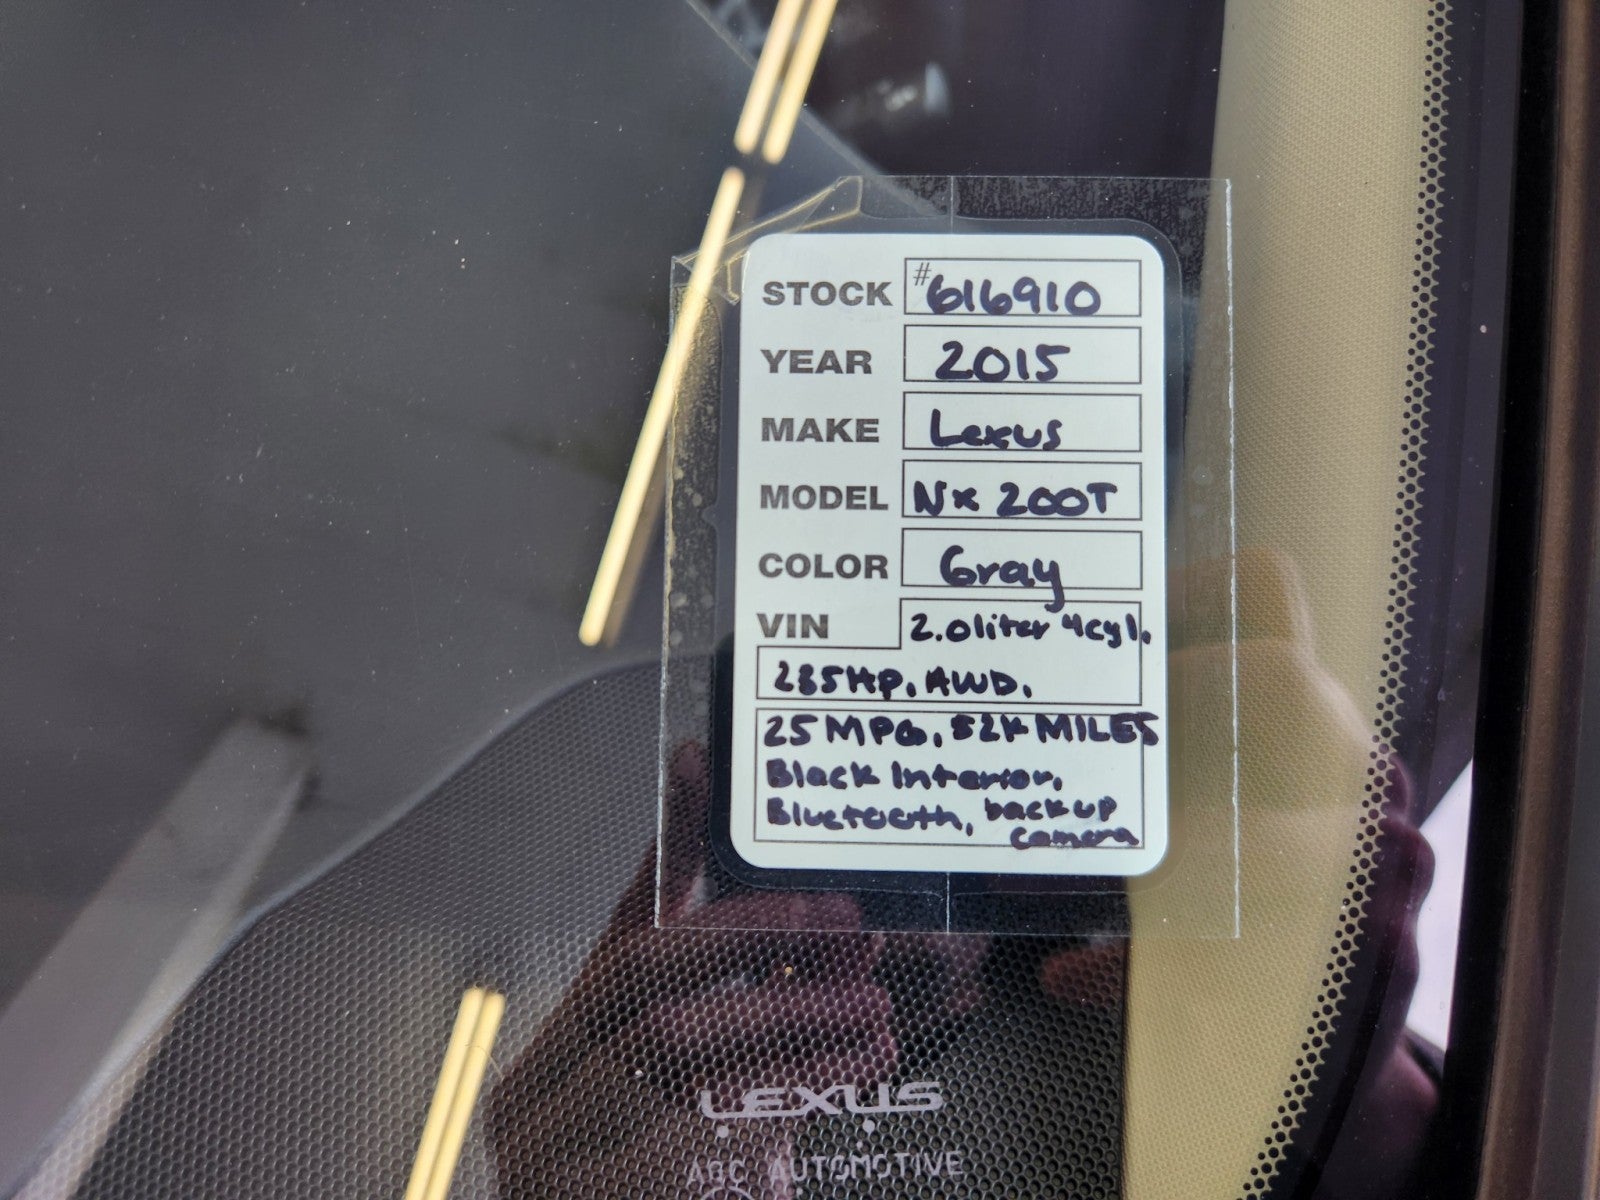 STOCK #616910
YEAR 2015
MAKE Lexus
MODEL NX 200T
COLOR Gray
VIN 2.0liter 4cyl.
235HP. AWD.
25 MPG, 52K MILES
Black Interior,
Bluetooth, back up
camera
LEXUS
AGC AUTOMOTIVE